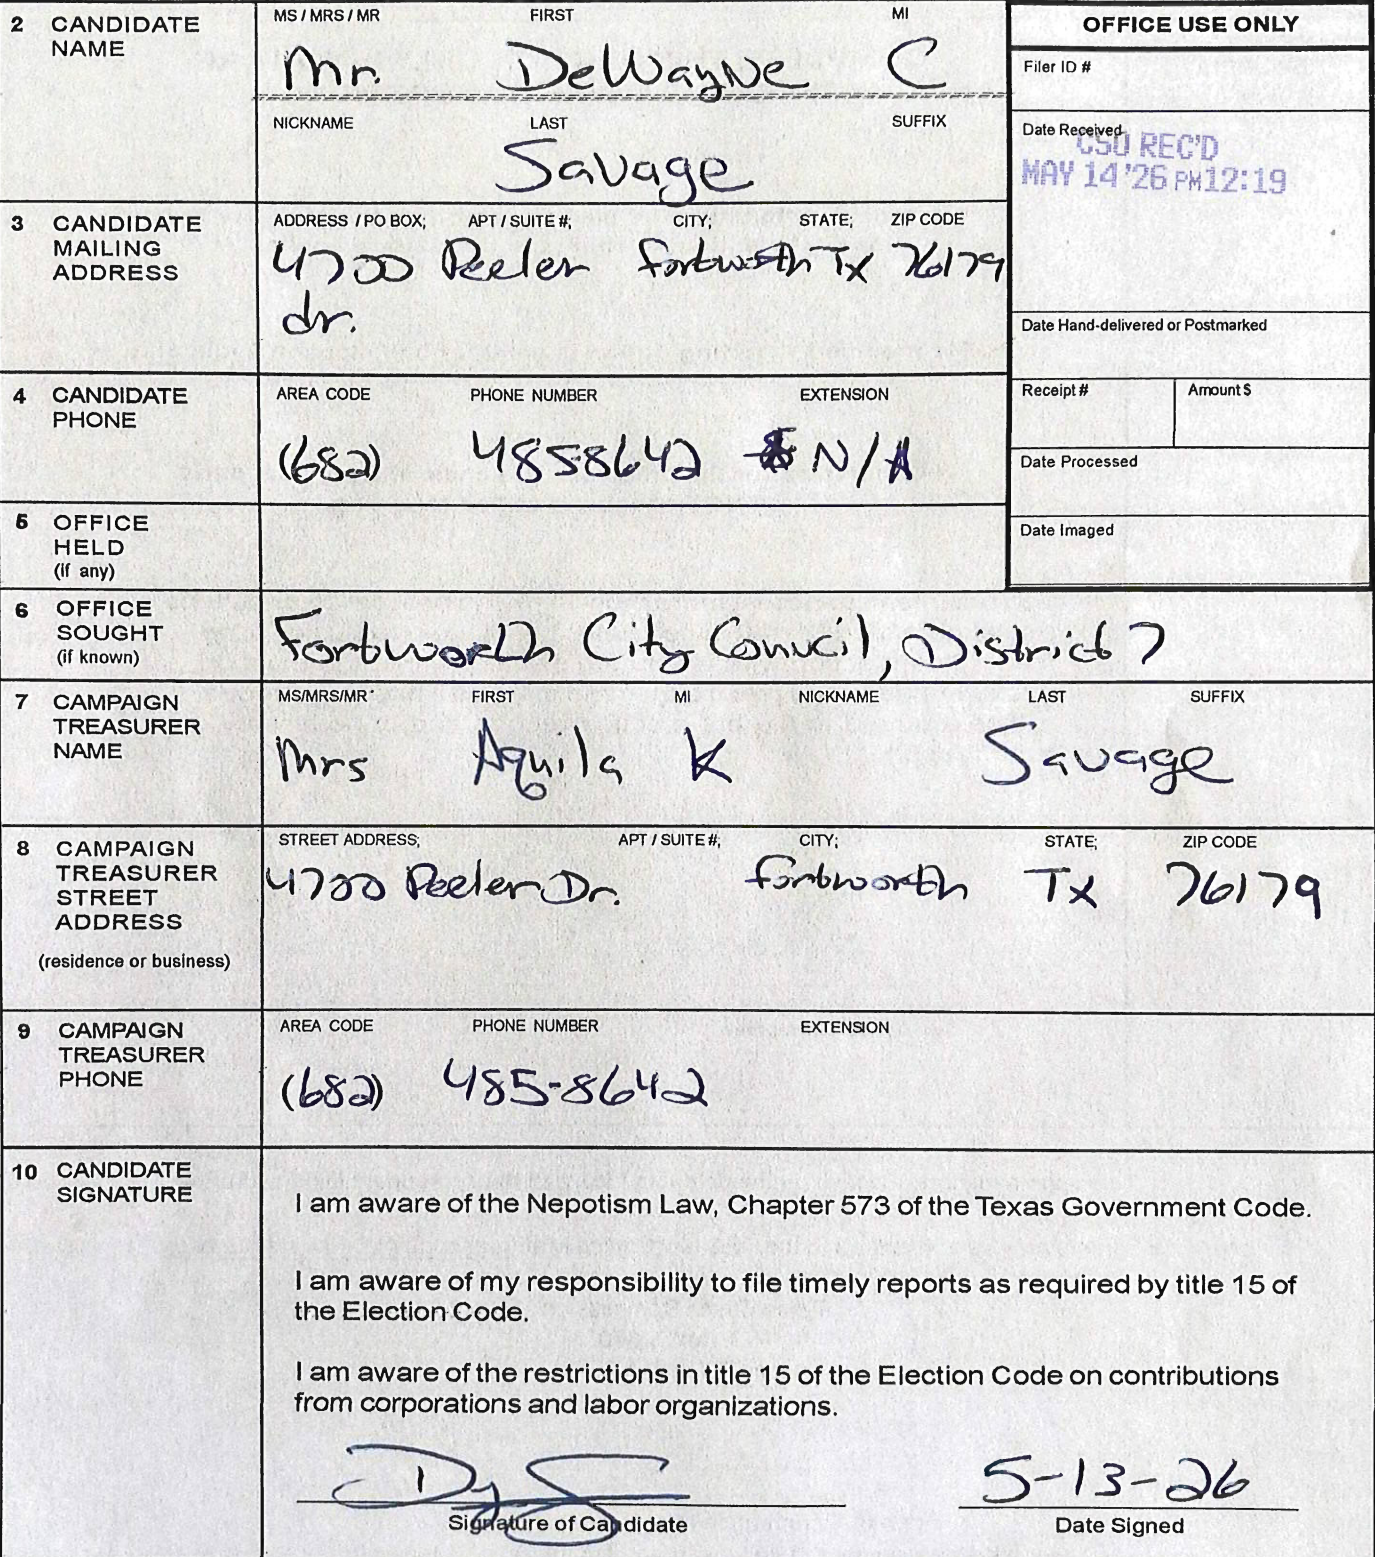 2 CANDIDATE NAME
MS / MRS / MR FIRST MI
Mr. DeWayne C
NICKNAME LAST SUFFIX
Savage
OFFICE USE ONLY
Filer ID #
Date Received
CSO REC'D
MAY 14 '26 PM 12:19
Date Hand-delivered or Postmarked
Receipt # Amount $
Date Processed
Date Imaged
3 CANDIDATE MAILING ADDRESS
ADDRESS / PO BOX; APT / SUITE #; CITY; STATE; ZIP CODE
4700 Peeler Fortworth Tx 76179
dr.
4 CANDIDATE PHONE
AREA CODE PHONE NUMBER EXTENSION
(682) 4858642 N/A
5 OFFICE HELD (if any)
6 OFFICE SOUGHT (if known)
Fortworth City Conucil, District 7
7 CAMPAIGN TREASURER NAME
MS/MRS/MR FIRST MI NICKNAME LAST SUFFIX
Mrs Aquila K Savage
8 CAMPAIGN TREASURER STREET ADDRESS
(residence or business)
STREET ADDRESS; APT / SUITE #; CITY; STATE; ZIP CODE
4700 Peeler Dr. fortworth Tx 76179
9 CAMPAIGN TREASURER PHONE
AREA CODE PHONE NUMBER EXTENSION
(682) 485-8642
10 CANDIDATE SIGNATURE
I am aware of the Nepotism Law, Chapter 573 of the Texas Government Code.
I am aware of my responsibility to file timely reports as required by title 15 of
the Election Code.
I am aware of the restrictions in title 15 of the Election Code on contributions
from corporations and labor organizations.
5-13-26
Signature of Candidate Date Signed